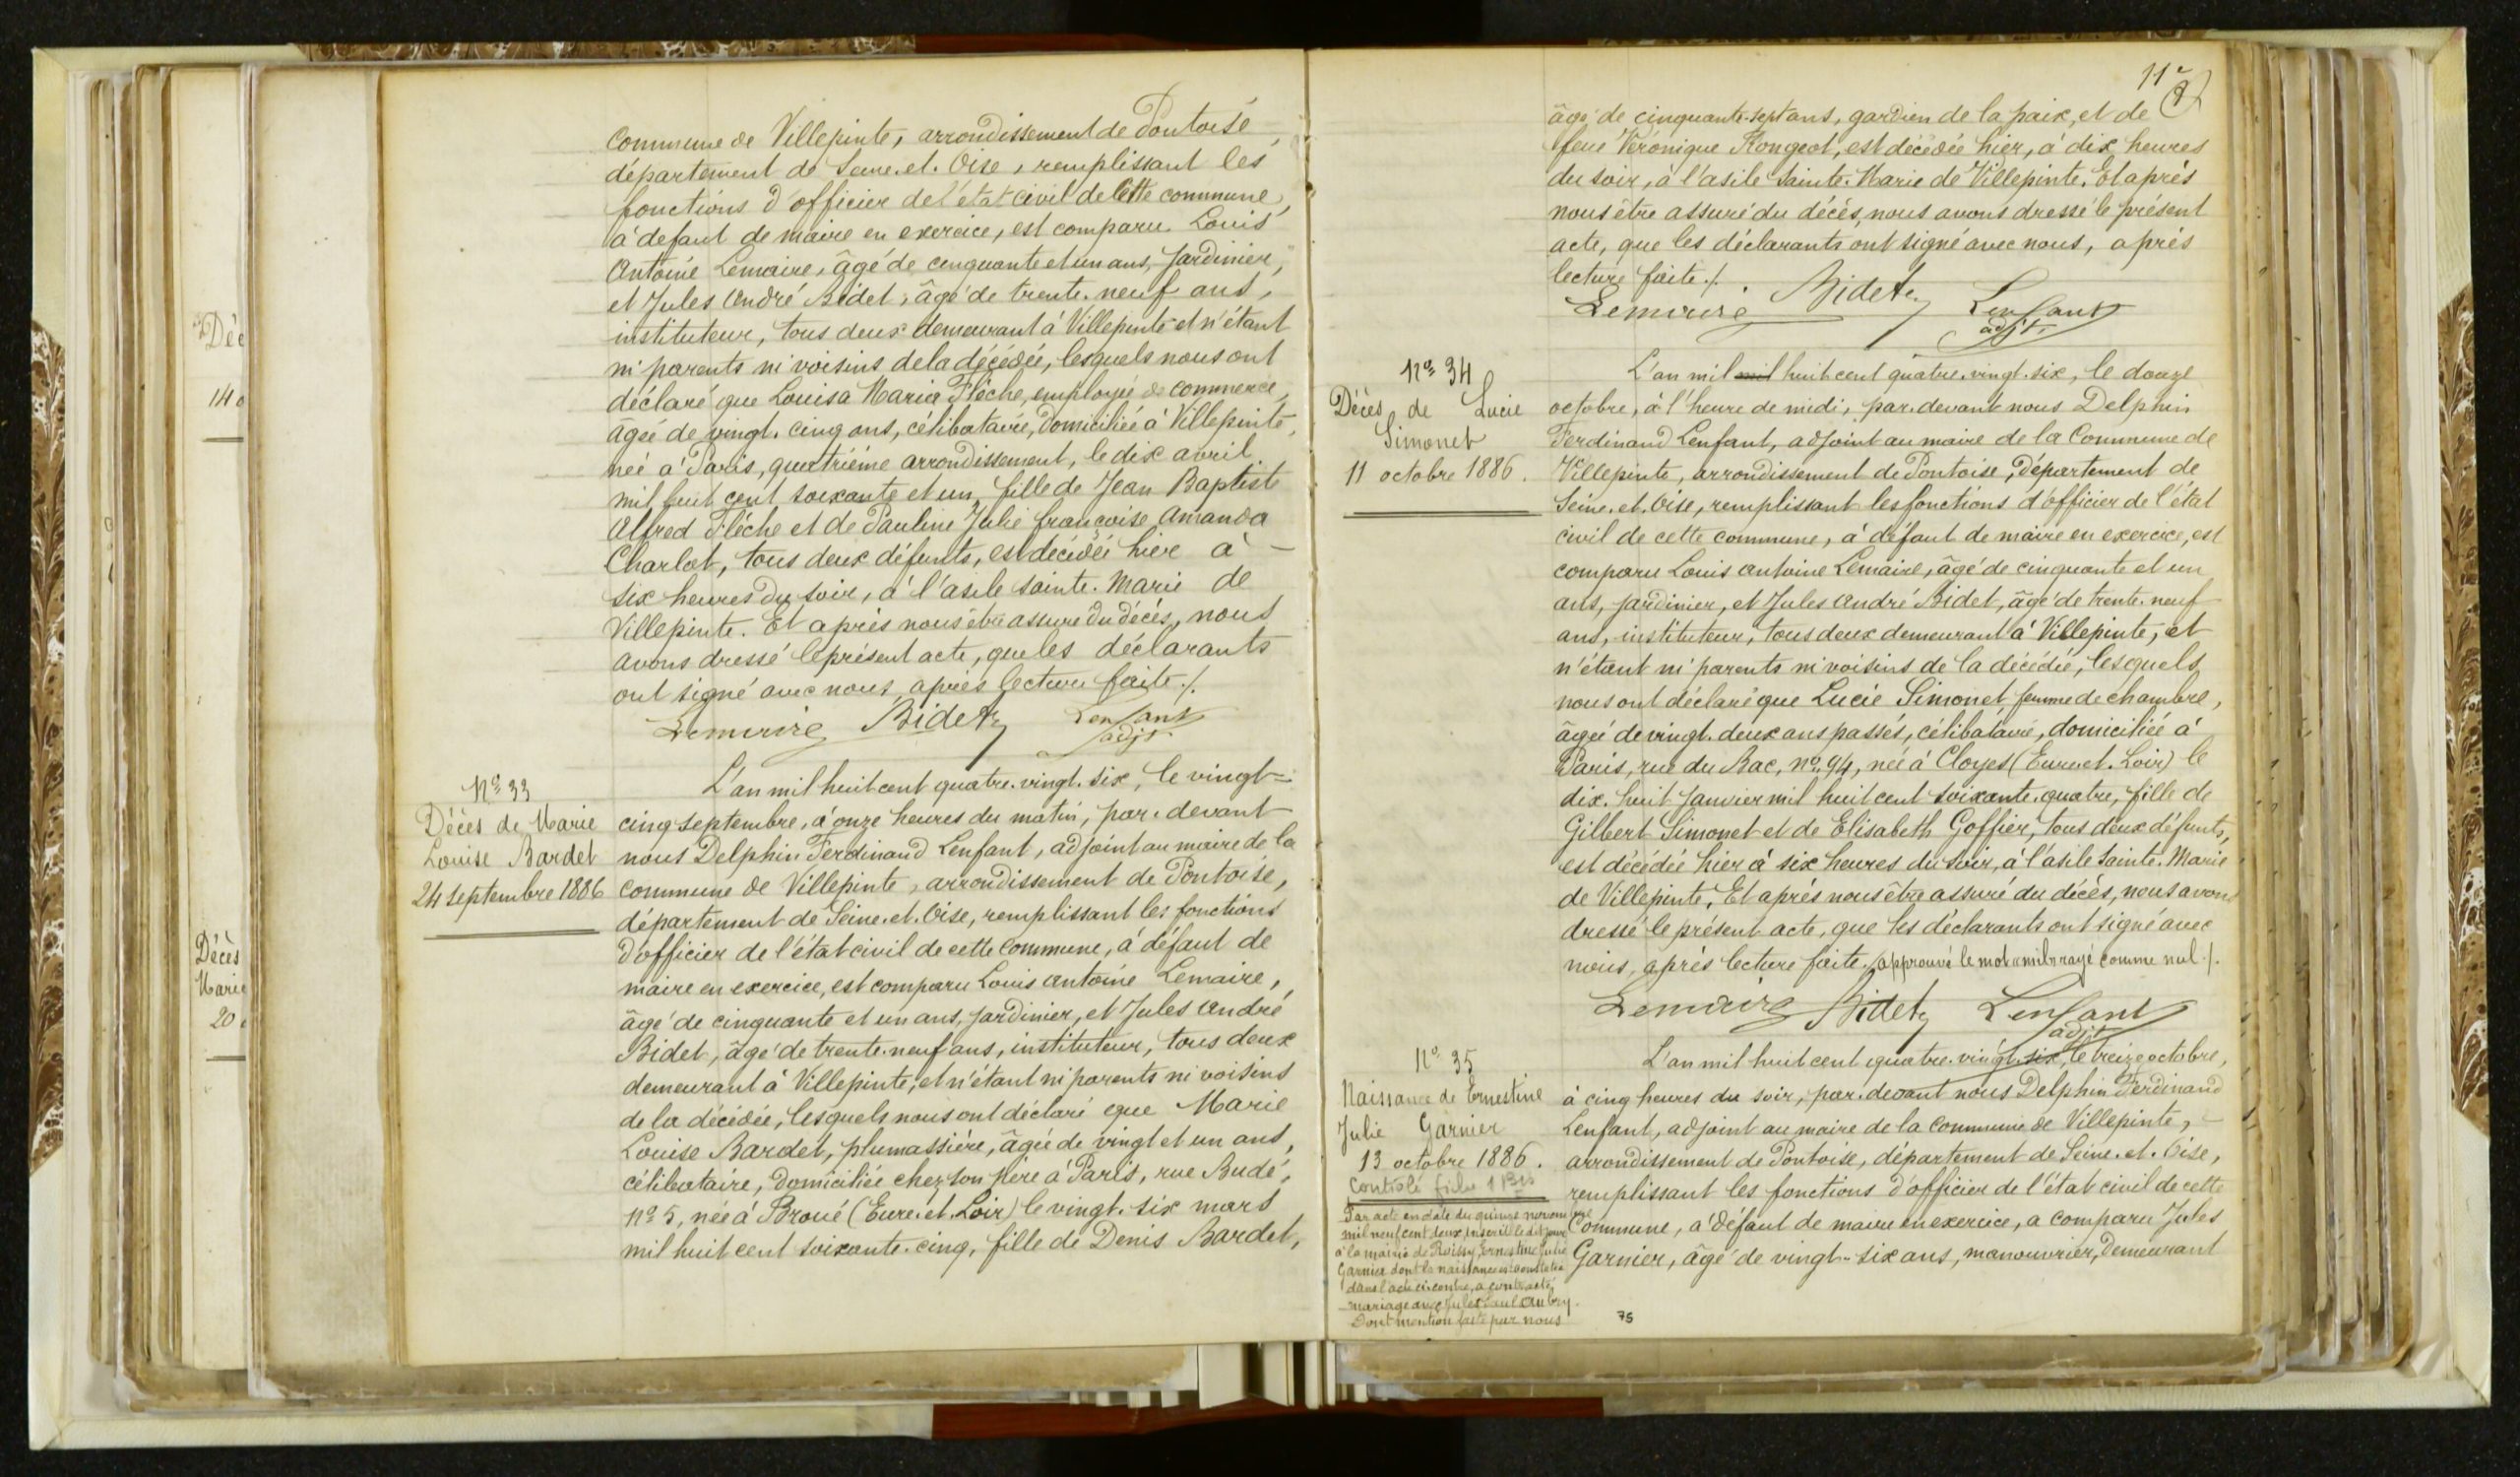 Déc
14 o
Décès
Marie
20
Commune de Villepinte, arrondissement de Pontoise,
département de Seine-et-Oise, remplissant les
fonctions d'officier de l'état civil de cette commune,
à defaut de maire en exercice, est comparu Louis
Antoine Lemaire, âgé de cinquante et un ans, Jardinier,
et Jules André Bidet, âgé de trente-neuf ans,
instituteur, tous deux demeurant à Villepinte et n'étant
ni parents ni voisins de la décédée, lesquels nous ont
déclaré que Louisa Maria Flèche, employée de commerce,
âgée de vingt-cinq ans, célibataire, domiciliée à Villepinte,
née à Paris, quatrième arrondissement, le dix avril
mil huit cent soixante et un, fille de Jean Baptiste
Alfred Flèche et de Pauline Julie françoise Amanda
Charlot, tous deux défunts, est décédée hier à -
six heures du soir, à l'asile sainte-Marie de
Villepinte. Et après nous être assuré du décès, nous
avons dressé le présent acte, que les déclarants
ont signé avec nous, après lecture faite./.
Lemaire Bidet Lenfant
adjt.
No 33
Décès de Marie
Louise Bardet
24 septembre 1886
L'an mil huit cent quatre-vingt-six, le vingt-
cinq septembre, à onze heures du matin, par-devant
nous Delphin Ferdinand Lenfant, adjoint au maire de la
commune de Villepinte, arrondissement de Pontoise,
département de Seine-et-Oise, remplissant les fonctions
d'officier de l'état civil de cette commune, à défaut de
maire en exercice, est comparu Louis Antoine Lemaire,
âgé de cinquante et un ans, jardinier, et Jules André
Bidet, âgé de trente-neuf ans, instituteur, tous deux
demeurant à Villepinte, et n'étant ni parents ni voisins
de la décédée, lesquels nous ont déclaré que Marie
Louise Bardet, plumassière, âgée de vingt et un ans,
célibataire, domiciliée chez son père à Paris, rue Budé,
No 5, née à Broué (Eure-et-Loir) le vingt-six mars
mil huit cent soixante-cinq, fille de Denis Bardet,
11e
âgé de cinquante-sept ans, gardien de la paix, et de
feue Véronique Rongeot, est décédée hier, à dix heures
du soir, à l'asile Sainte-Marie de Villepinte. Et après
nous être assuré du décès, nous avons dressé le présent
acte, que les déclarants ont signé avec nous, après
lecture faite./.
Lemaire Bidet Lenfant
adjt.
No 34
Décès de Lucie
Simonet
11 octobre 1886.
L'an mil mil huit cent quatre-vingt-six, le douze
octobre, à l'heure de midi, par-devant nous Delphin
Ferdinand Lenfant, adjoint au maire de la Commune de
Villepinte, arrondissement de Pontoise, département de
Seine-et-Oise, remplissant les fonctions d'officier de l'état
civil de cette commune, à défaut de maire en exercice, est
comparu Louis Antoine Lemaire, âgé de cinquante et un
ans, jardinier, et Jules André Bidet, âgé de trente-neuf
ans, instituteur, tous deux demeurant à Villepinte, et
n'étant ni parents ni voisins de la décédée, lesquels
nous ont déclaré que Lucie Simonet, femme de chambre,
âgée de vingt-deux ans passés, célibataire, domiciliée à
Paris, rue du Bac, no 94, née à Cloyes (Eure-et-Loir) le
dix-huit Janvier mil huit cent soixante-quatre, fille de
Gilbert Simonet et de Elisabeth Goffier, tous deux défunts,
est décédée hier à six heures du soir, à l'asile Sainte-Marie
de Villepinte. Et après nous être assuré du décès, nous avons
dressé le présent acte, que les déclarants ont signé avec
nous, après lecture faite. approuvé le mot «mil» rayé comme nul./.
Lemaire Bidet Lenfant
adjt
No 35
Naissance de Ernestine
Julie Garnier
13 octobre 1886.
Contrôlé
Par acte en date du quinze novembre
mil neuf cent deux, inscrit le dit jour
à la mairie de Roissy, Ernestine Julie
Garnier dont la naissance est constatée
dans l'acte ci-contre, a contracté
mariage avec Jules Paul Aubry.
Dont mention faite par nous
L'an mil huit cent quatre-vingt-six, le treize octobre,
à cinq heures du soir, par-devant nous Delphin Ferdinand
Lenfant, adjoint au maire de la Commune de Villepinte, -
arrondissement de Pontoise, département de Seine-et-Oise,
remplissant les fonctions d'officier de l'état civil de cette
Commune, à défaut de maire en exercice, a comparu Jules
Garnier, âgé de vingt-six ans, manouvrier, demeurant
75